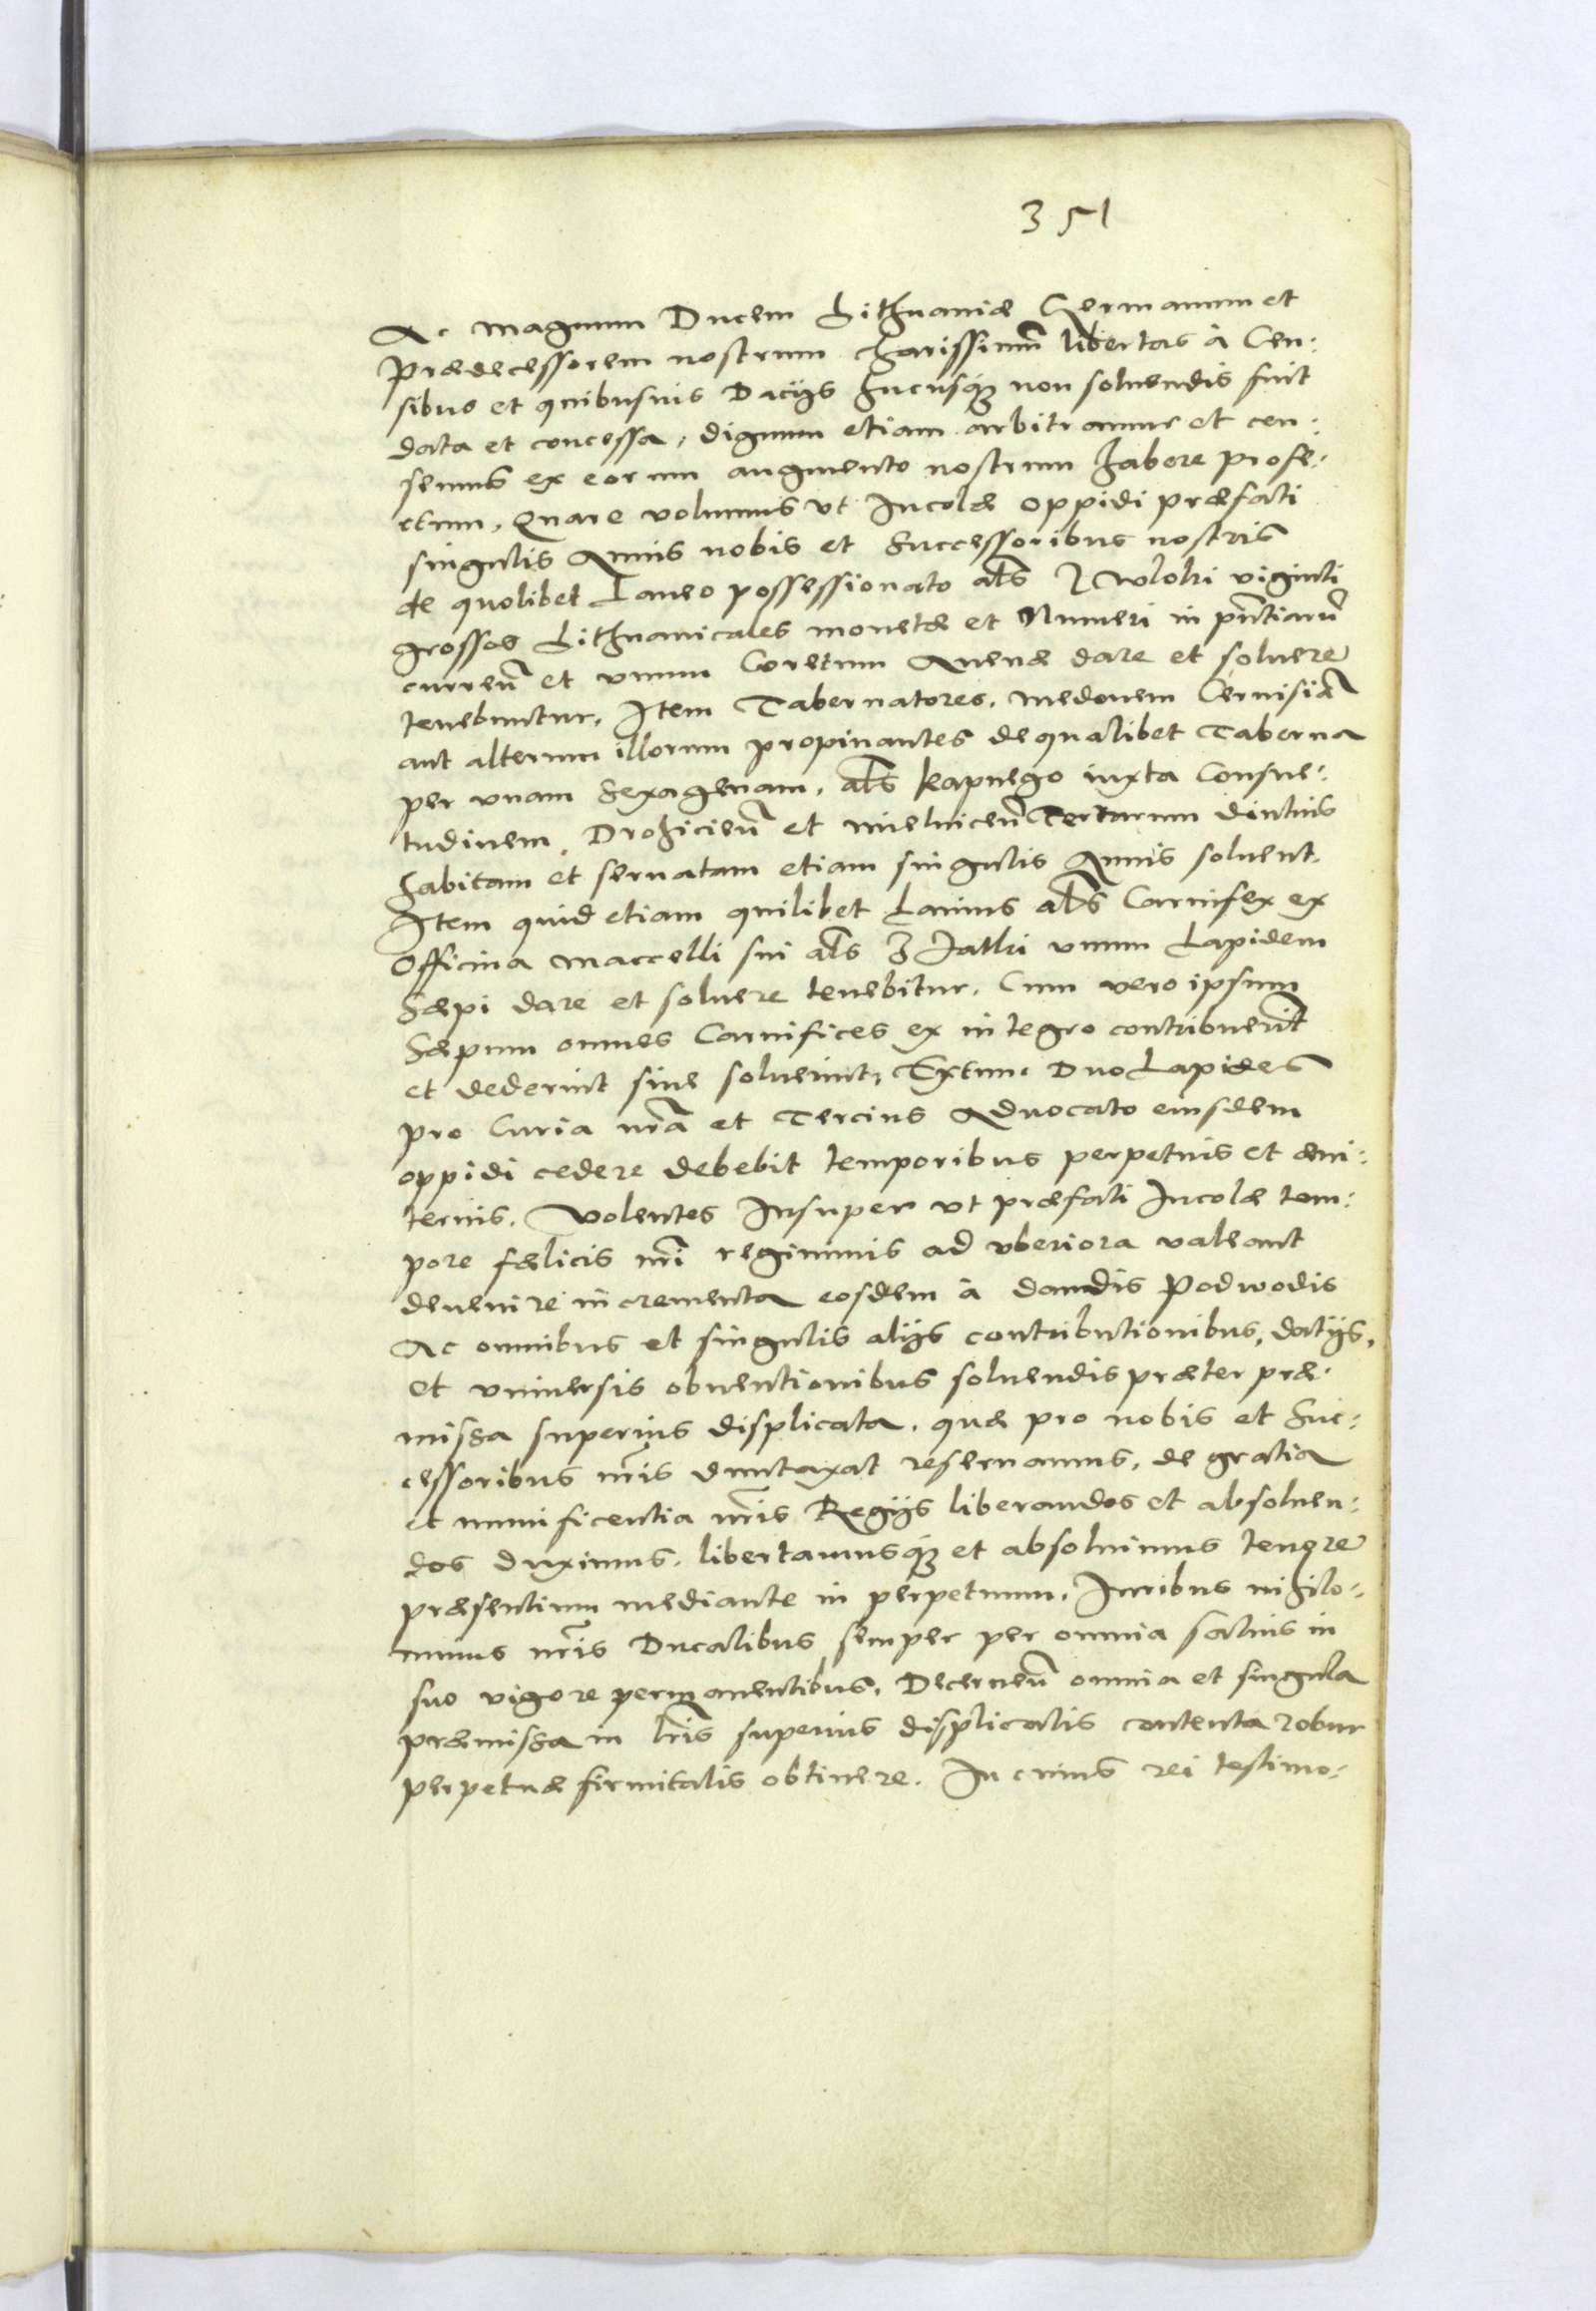 351
Ac magnum Ducem Lithuaniæ Germanum et
Prædecessorem nostrum charissimũ libertas à Cen:
sibus et quibusuis Dacijs hucusq₃ non soluendis fuit
data et concessa, dignum etiam arbitramur et cen:
semus ex eorum augmento nostrum habere profe:
ctum, Quare volumus vt Incolæ oppidi præfati
singulis Annis nobis et Successoribus nostris
de quolibet Laneo possessionato als z wloki viginti
grossos Lithuanicales monetæ et Numeri in pñtiarũ
curreñ et vnum Coretum Auenæ dare et soluere
tenebuntur. Item Tabernatores, medonem Ceruisiã
aut alterum illorum propinantes de qualibet Taberna
per vnam Sexagenam, als kapnego iuxta Consue:
tudinem Drohicieñ et mielniceñ Terrarum diutius
habitam et seruatam etiam singulis Annis soluent.
Item quid etiam quilibet Lanius als Carnifex ex
Officina Maccelli sui als z Jatki vnum Lapidem
Sæpi dare et soluere tenebitur. Cum vero ipsum
Sæpum omnes Carnifices ex integro contribuerĩt
et dederint siue soluerint, Extunc Duo Lapides
pro Curia nrã et Tercius Aduocato eiusdem
oppidi cedere debebit temporibus perpetuis et æui:
ternis. Volentes Insuper vt præfati Incolæ tem:
pore fælicis nri regiminis ad vberiora valeant
deuenire incrementa eosdem à dandis Podwodis
Ac omnibus et singulis alijs contributionibus, datijs,
et vniuersis obuentionibus soluendis præter præ:
missa superius displicata, quæ pro nobis et Suc:
cessoribus nris duntaxat reseruamus, de gratia
et munificentia nris Regijs liberandos et absoluen:
dos duximus, libertamusq₃ et absoluimus tenore
præsentium mediante in perpetuum. Iuribus nihilo:
minus nris Ducalibus semper per omnia saluis in
suo vigore permanentibus. Decerneñ omnia et singula
præmissa in lris superius displicatis contenta robur
perpetuæ firmitatis obtinere. In cuius rei testimo: